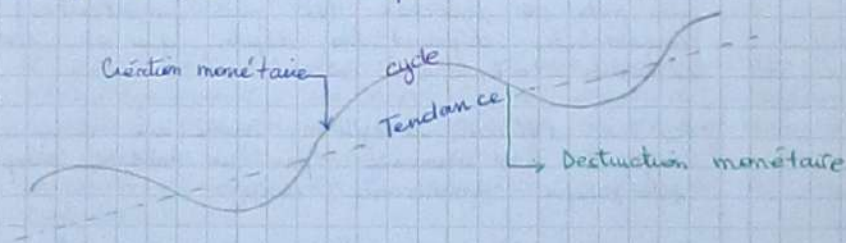 cycle
Création monétaire
Tendance
Destruction monétaire